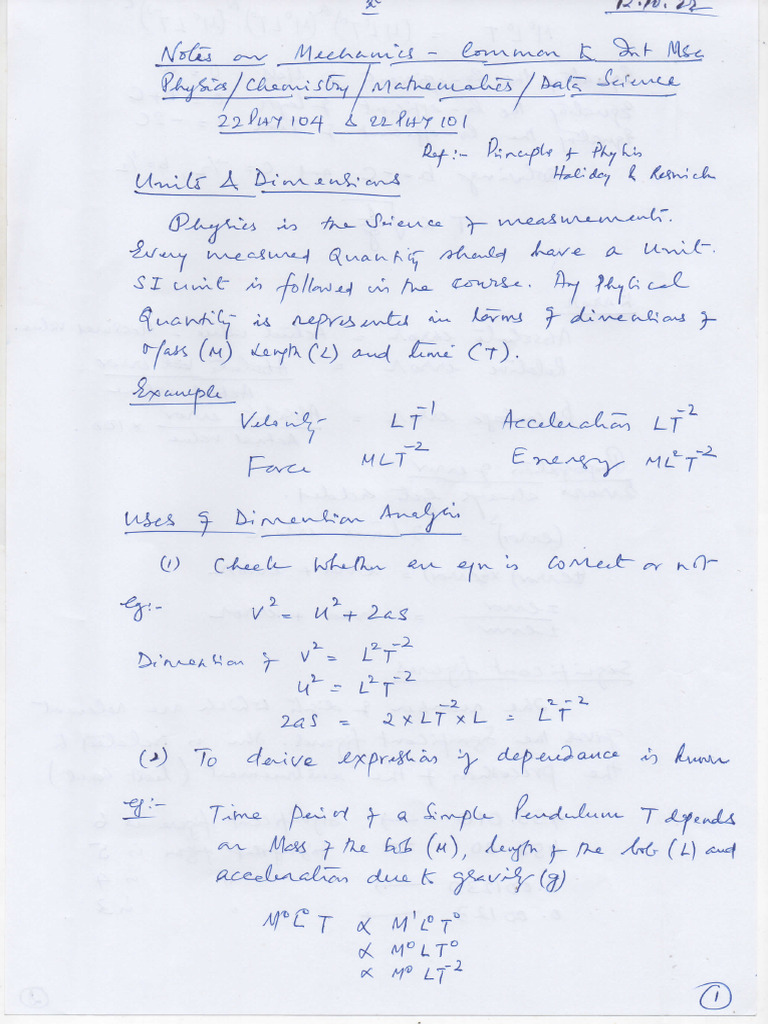 12.10.22
Notes on Mechanics - Common to Int MSc
Physics/Chemistry/Mathematics/Data Science
22PHY104 & 22PHY101
Ref:- Principle of Physics
Haliday & Resnick
Units & Dimensions
Physics is the Science of measurements.
Every measured Quantity should have a Unit.
SI Unit is followed in the course. Any Physical
Quantity is represented in terms of dimensions of
Mass (M) Length (L) and time (T).
Example
Velocity LT⁻¹ Acceleration LT⁻²
Force MLT⁻² Energy ML²T⁻²
Uses of Dimension Analysis
(1) Check whether an eqn is correct or not
Eg:- V² = U² + 2as
Dimension of V² = L²T⁻²
U² = L²T⁻²
2as = 2 × LT⁻² × L = L²T⁻²
(2) To derive expression if dependance is known
eg:- Time period of a Simple Pendulum T depends
on Mass of the bob (M), length of the bob (L) and
acceleration due to gravity (g)
M⁰L⁰T ∝ M¹L⁰T⁰
∝ M⁰LT⁰
∝ M⁰LT⁻²
1